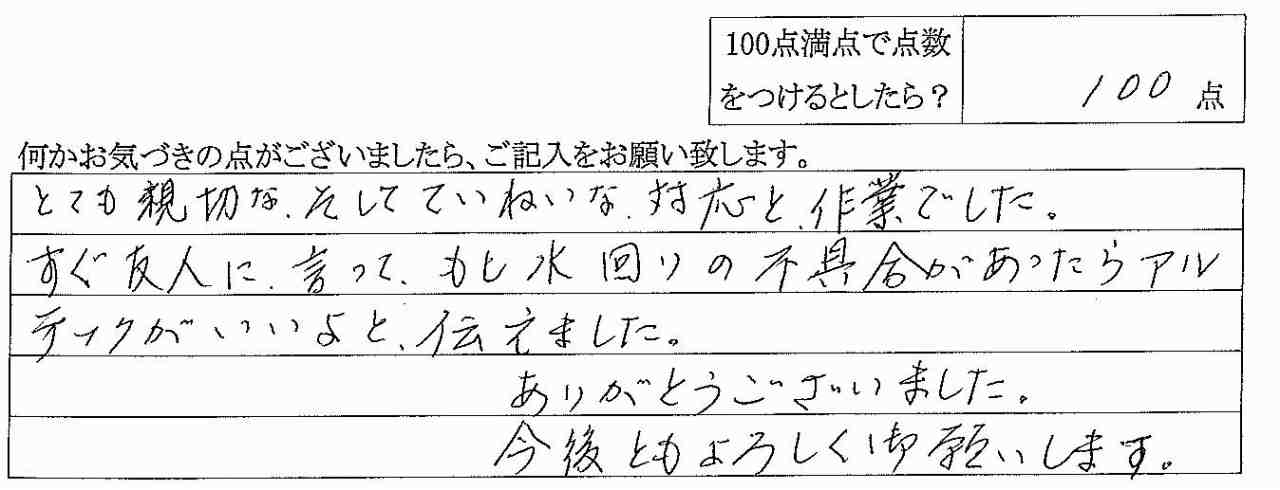 100点満点で点数
をつけるとしたら？ 100 点
何かお気づきの点がございましたら、ご記入をお願い致します。
とても親切な、そしてていねいな、対応と、作業でした。
すぐ友人に、言って、もし水回りの不具合があったらアル
ティクがいいよと、伝えました。
ありがとうございました。
今後ともよろしく御願いします。